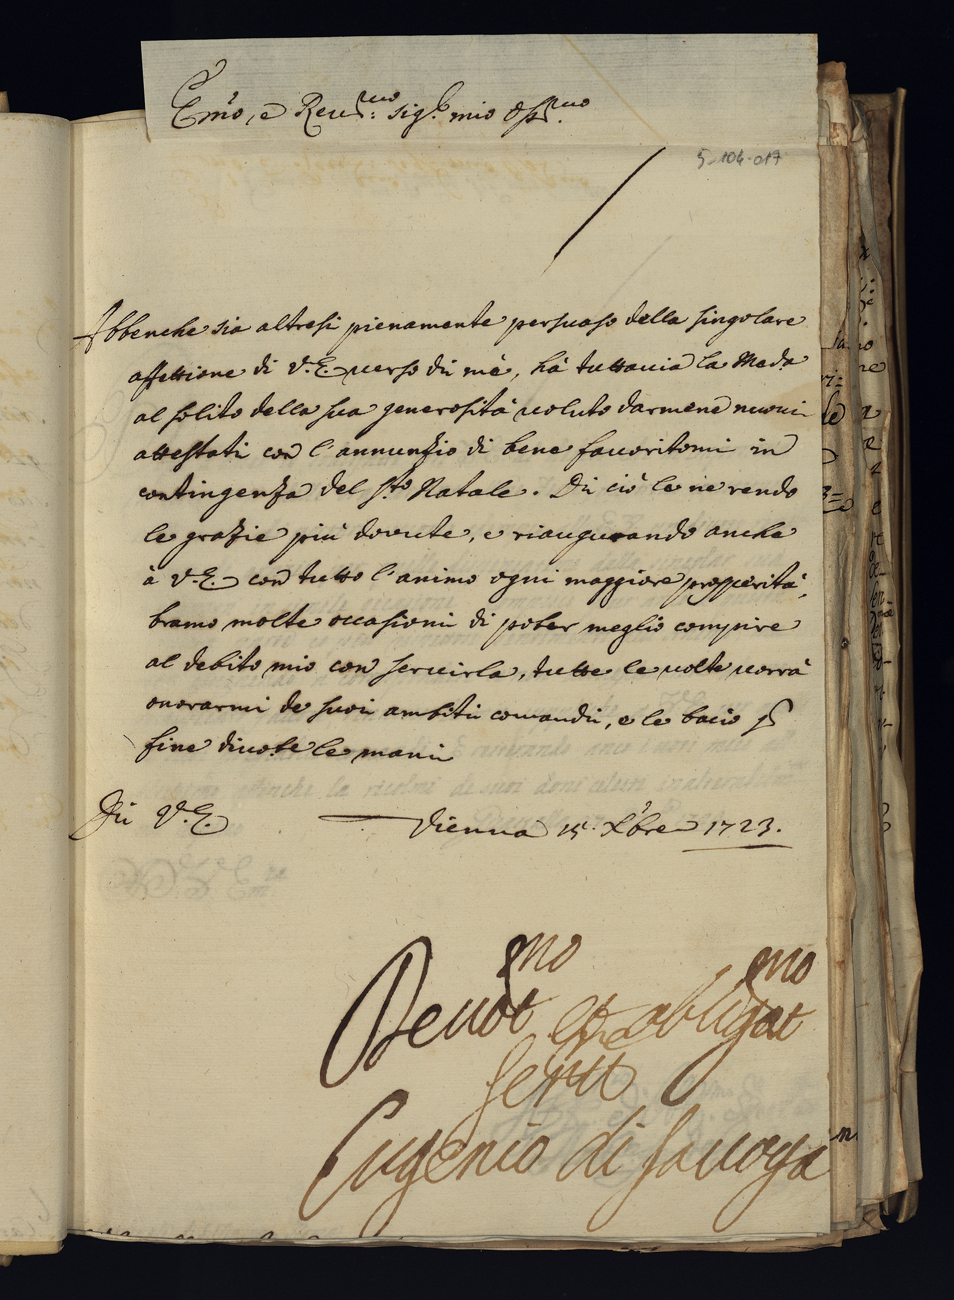 Em̃o, e Reu.mo sig.r mio oss.mo
5-104-017
Abbenche sia altresi pienamente persuaso della singolare
affettione di V.E. verso di mè, hà tuttauia la Med.a
al solito della sua generosità uoluto darmene nuoui
attestati con l'annunzio di bene fauoritomi in
contingenza del s.to Natale. Di ciò le ne rendo
le grazie più dovute, e riaugurando anche
à V.E. con tutto l'animo ogni maggiore prosperità,
bramo molte occasioni di poter meglio compire
al debito mio con seruirla, tutte le uolte uorrà
onorarmi de suoi ambiti comandi, e le bacio p
fine diuote le mani
Di V.E. Vienna 15. Xbre 1723.
Deuot.mo et obligat.mo
seru
Eugenio di Sauoya